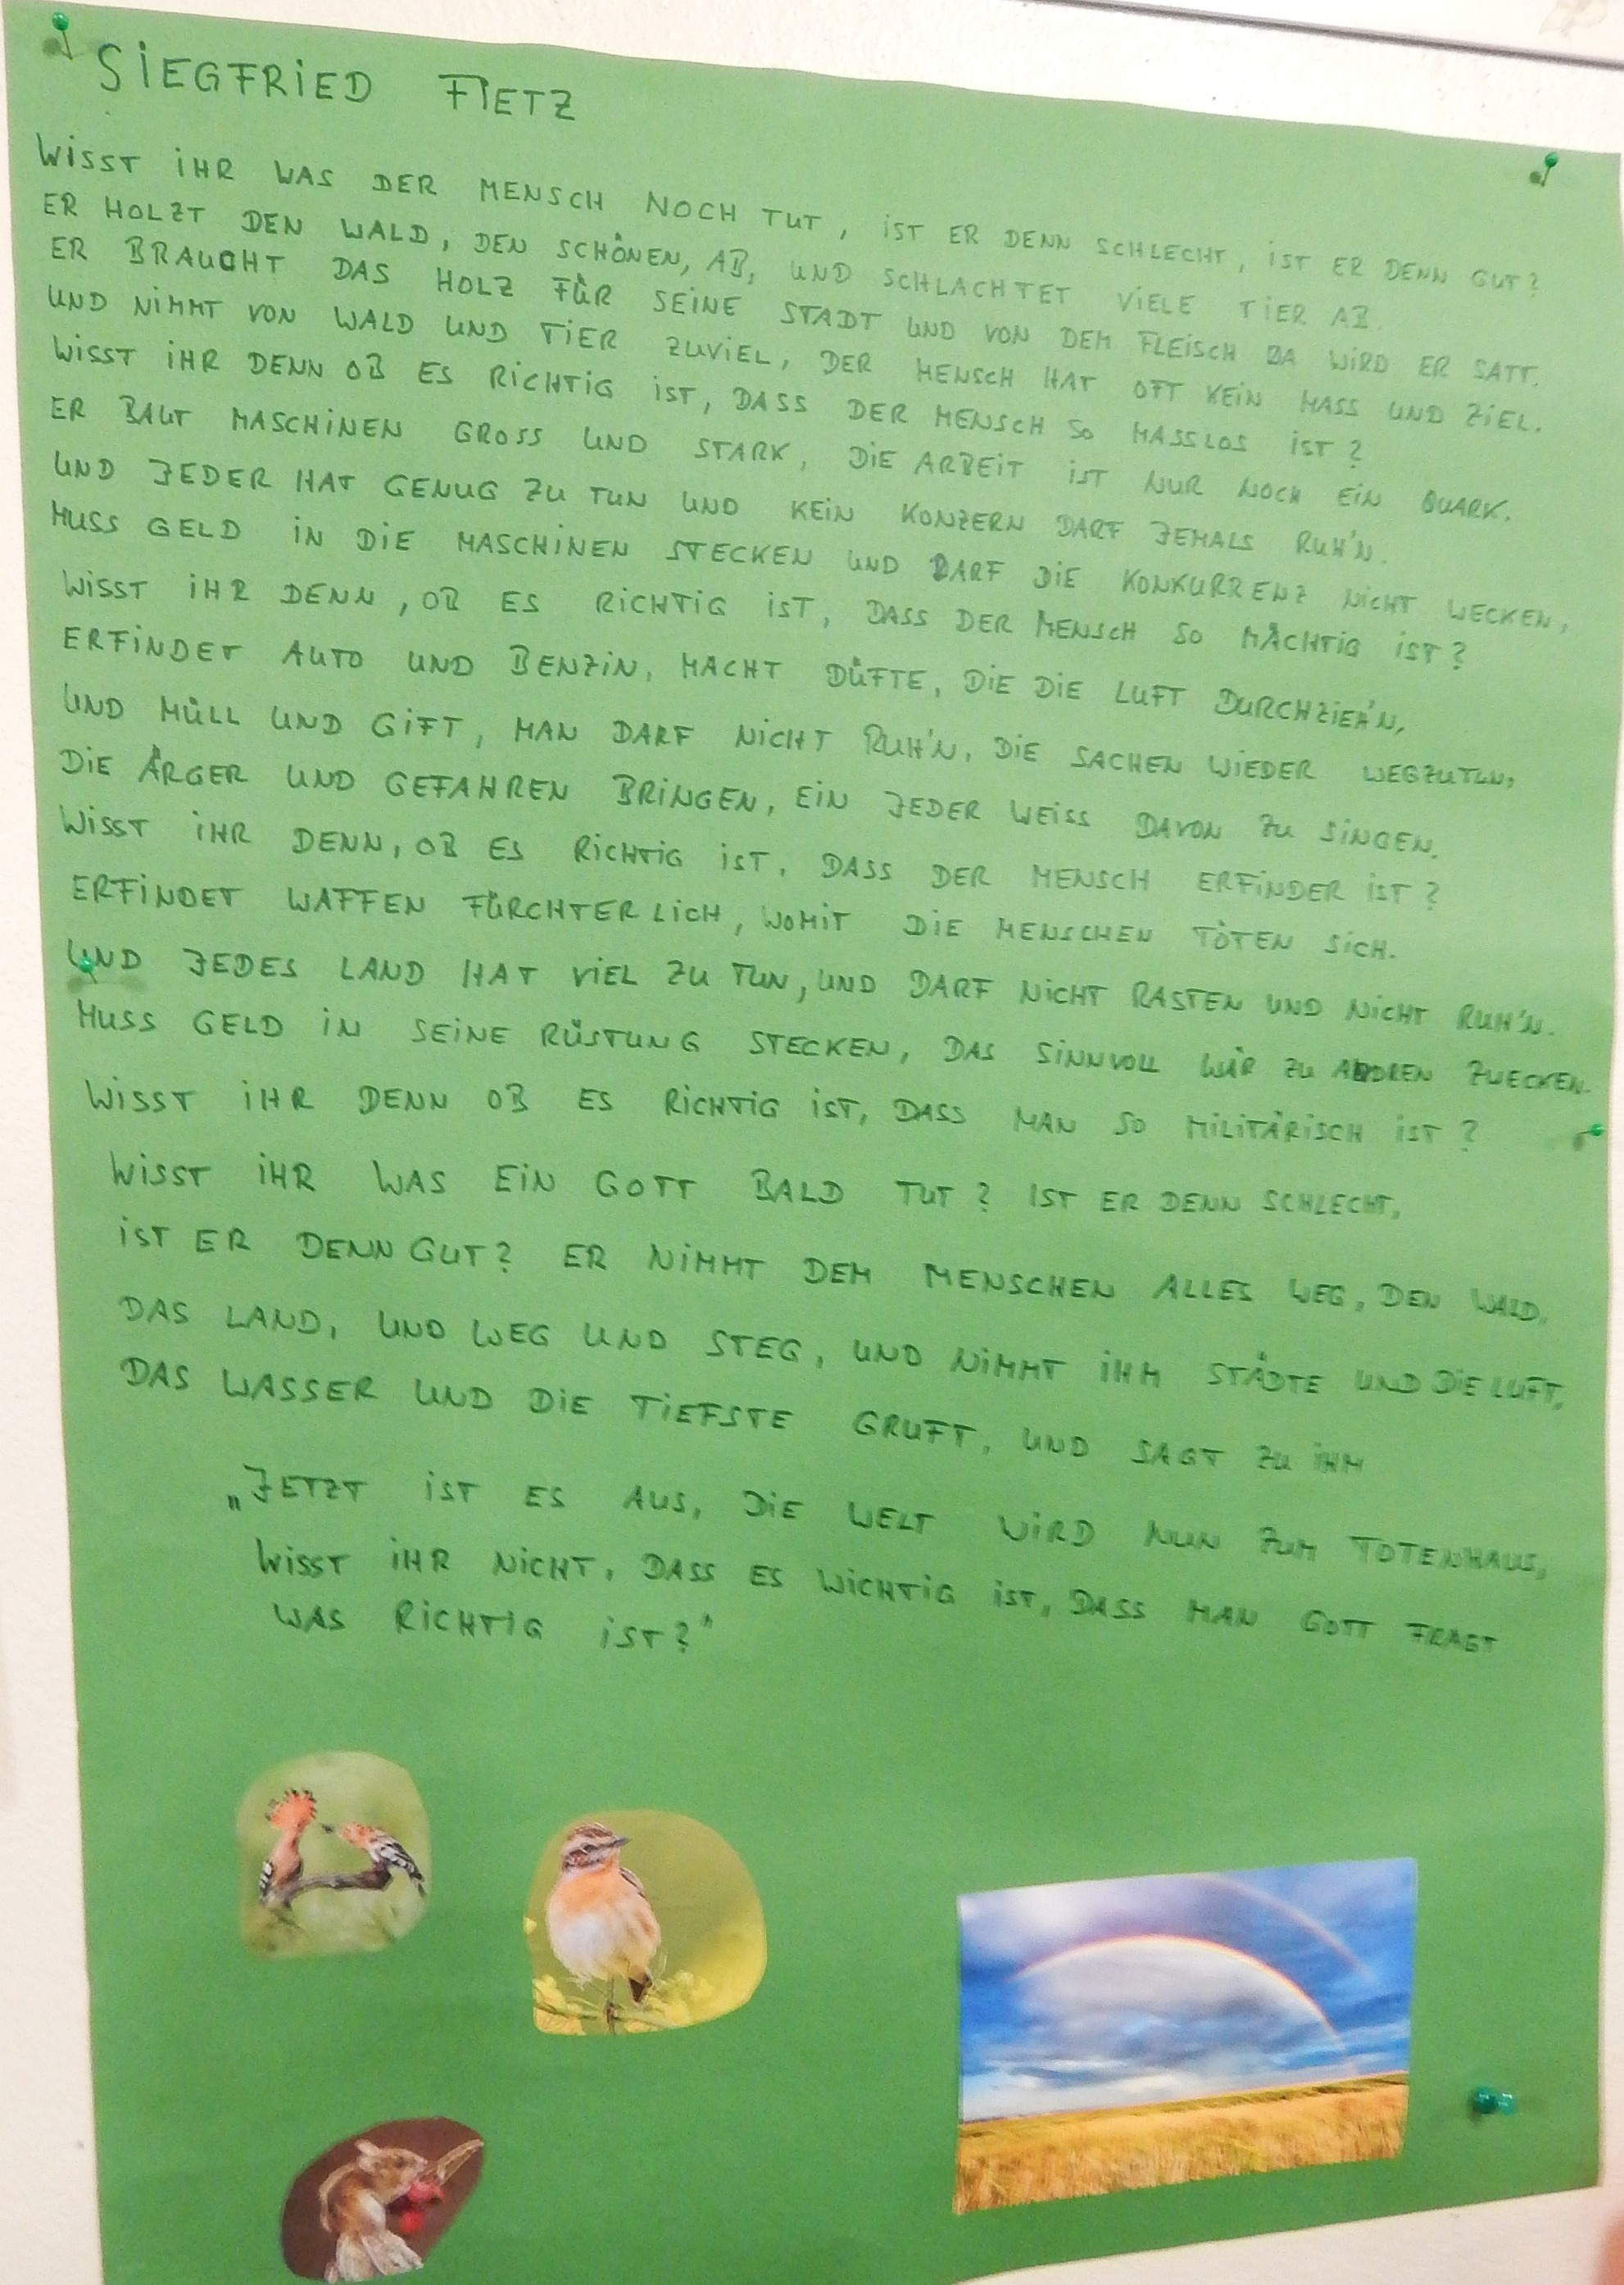 SIEGFRIED FIETZ
WISST IHR WAS DER MENSCH NOCH TUT, IST ER DENN SCHLECHT, IST ER DENN GUT?
ER HOLZT DEN WALD, DEN SCHÖNEN, AB, UND SCHLACHTET VIELE TIER AB.
ER BRAUCHT DAS HOLZ FÜR SEINE STADT UND VON DEM FLEISCH DA WIRD ER SATT.
UND NIMMT VON WALD UND TIER ZUVIEL, DER MENSCH HAT OFT KEIN MASS UND ZIEL.
WISST IHR DENN OB ES RICHTIG IST, DASS DER MENSCH SO MASSLOS IST?
ER BAUT MASCHINEN GROSS UND STARK, DIE ARBEIT IST NUR NOCH EIN QUARK.
UND JEDER HAT GENUG ZU TUN UND KEIN KONZERN DARF JEMALS RUH'N.
MUSS GELD IN DIE MASCHINEN STECKEN UND DARF DIE KONKURRENZ NICHT WECKEN,
WISST IHR DENN, OB ES RICHTIG IST, DASS DER MENSCH SO MÄCHTIG IST?
ERFINDET AUTO UND BENZIN, MACHT DÜFTE, DIE DIE LUFT DURCHZIEH'N,
UND MÜLL UND GIFT, MAN DARF NICHT RUH'N, DIE SACHEN WIEDER WEGZUTUN,
DIE ÄRGER UND GEFAHREN BRINGEN, EIN JEDER WEISS DAVON ZU SINGEN.
WISST IHR DENN, OB ES RICHTIG IST, DASS DER MENSCH ERFINDER IST?
ERFINDET WAFFEN FÜRCHTERLICH, WOMIT DIE MENSCHEN TÖTEN SICH.
UND JEDES LAND HAT VIEL ZU TUN, UND DARF NICHT RASTEN UND NICHT RUH'N.
MUSS GELD IN SEINE RÜSTUNG STECKEN, DAS SINNVOLL WÄR ZU ANDREN ZWECKEN.
WISST IHR DENN OB ES RICHTIG IST, DASS MAN SO MILITÄRISCH IST?
WISST IHR WAS EIN GOTT BALD TUT? IST ER DENN SCHLECHT,
IST ER DENN GUT? ER NIMMT DEM MENSCHEN ALLES WEG, DEN WALD,
DAS LAND, UND WEG UND STEG, UND NIMMT IHM STÄDTE UND DIE LUFT,
DAS WASSER UND DIE TIEFSTE GRUFT, UND SAGT ZU IHM
„JETZT IST ES AUS, DIE WELT WIRD NUN ZUM TOTENHAUS,
WISST IHR NICHT, DASS ES WICHTIG IST, DASS MAN GOTT FRAGT
WAS RICHTIG IST?"